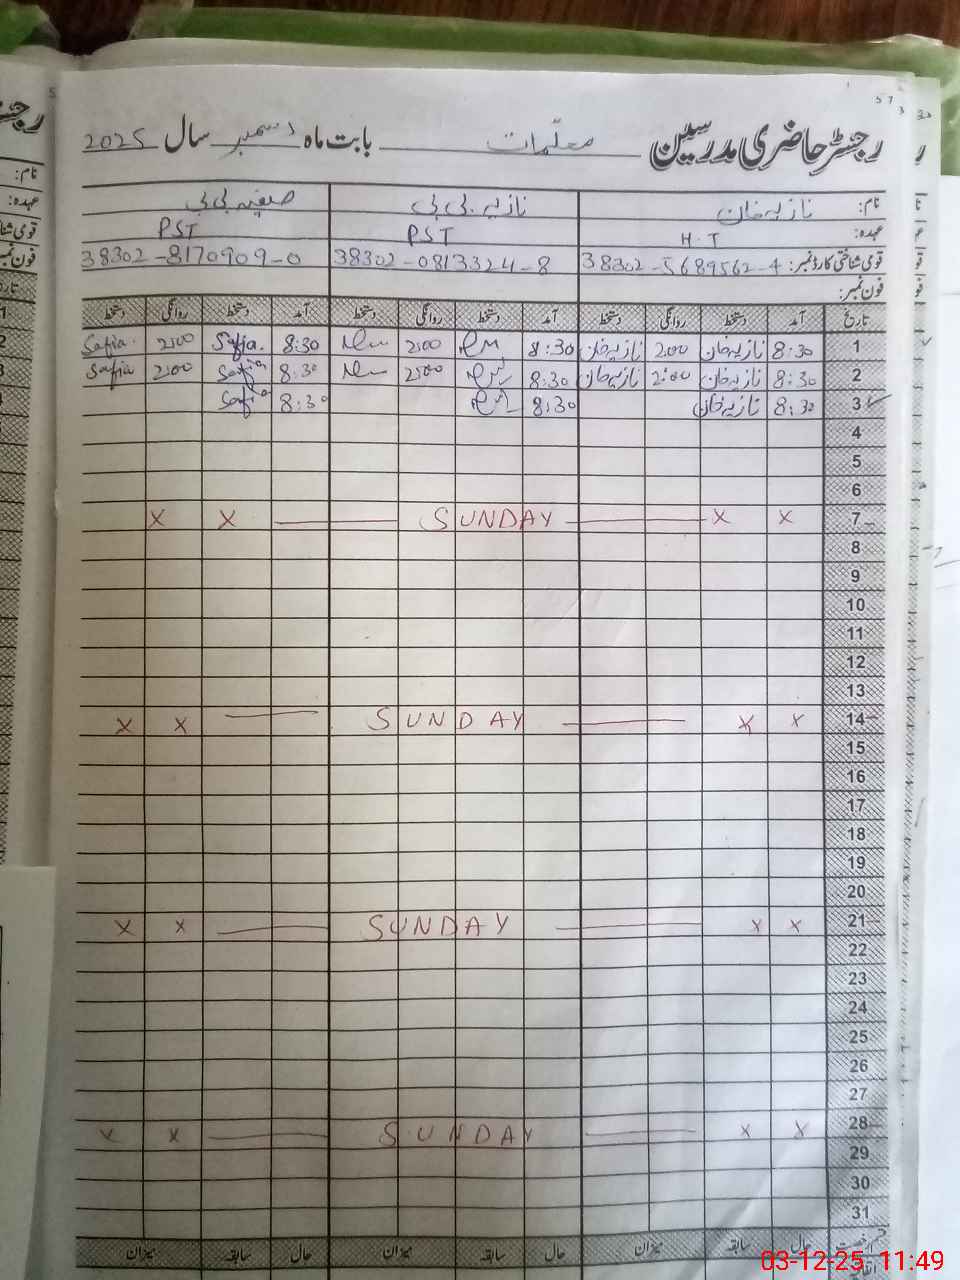 رجسٹر حاضری مدرسین معلّمات بابت ماہ دسمبر سال 2025
نام: نازیہ خان نازیہ بی بی صفیہ بی بی
عہدہ: H.T PST PST
قومی شناختی کارڈ نمبر: 38302-5689562-4 38302-0813324-8 38302-8170909-0
فون نمبر:
تاریخ آمد دستخط روانگی دستخط آمد دستخط روانگی دستخط آمد دستخط روانگی دستخط
1 8:30 نازیہ خان 2:00 نازیہ خان 8:30 2:00 8:30 Safia. 2:00 Safia.
2 8:30 نازیہ خان 2:00 نازیہ خان 8:30 2:00 8:30 Safia 2:00 Safia
3 8:30 نازیہ خان 8:30 8:30 Safia
4
5
6
7 x x SUNDAY x x
8
9
10
11
12
13
14 x x SUNDAY x x
15
16
17
18
19
20
21 x x SUNDAY x x
22
23
24
25
26
27
28 x x SUNDAY x x
29
30
31
حال سابقہ میزان حال سابقہ میزان حال سابقہ میزان
03-12-25 11:49